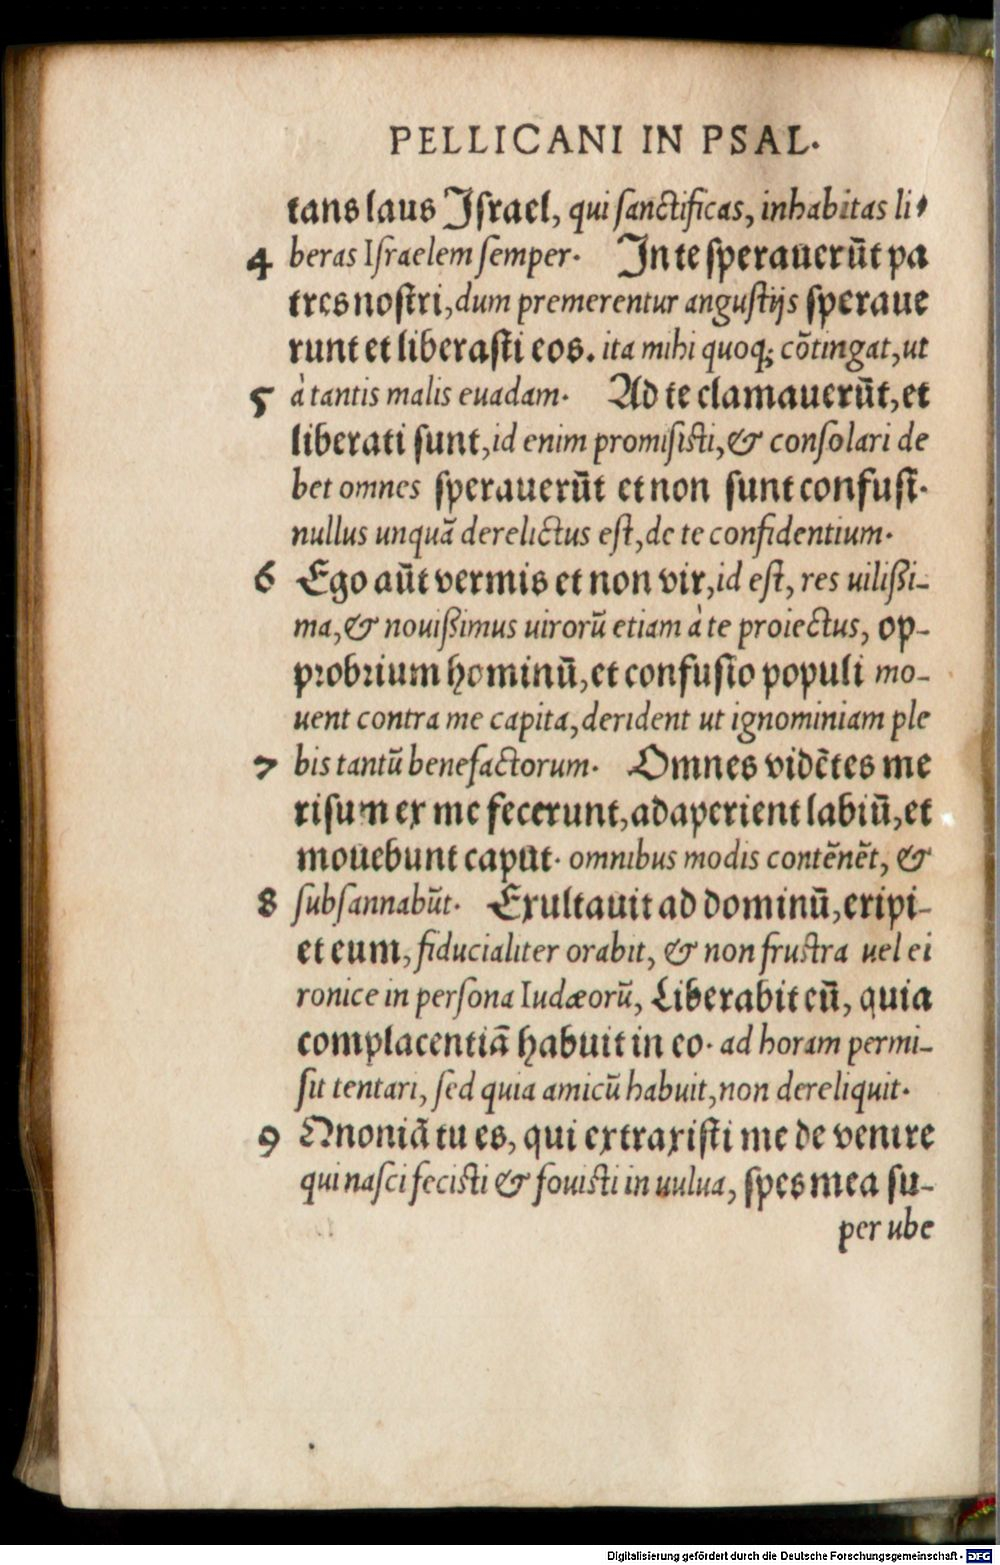 PELLICANI IN PSAL.
tans laus Iſrael, qui ſanctificas, inhabitas li
4 beras Iſraelem ſemper. In te ſperauerũt pa
tres noſtri, dum premerentur anguſtijs ſperaue
runt et liberaſti eos. ita mihi quoq; cõtingat, ut
5 à tantis malis euadam. Ad te clamauerũt, et
liberati ſunt, id enim promiſiſti, & conſolari de
bet omnes ſperauerũt et non ſunt confuſi.
nullus unquã derelictus eſt, de te confidentium.
6 Ego aũt vermis et non vir, id eſt, res uilißi-
ma, & nouißimus uirorũ etiam à te proiectus, op-
probrium hominũ, et confuſio populi mo-
uent contra me capita, derident ut ignominiam ple
7 bis tantũ benefactorum. Omnes vidẽtes me
riſum ex me fecerunt, adaperient labiũ, et
mouebunt caput. omnibus modis contẽnẽt, &
8 ſubſannabũt. Exultauit ad dominũ, eripi-
et eum, fiducialiter orabit, & non fruſtra uel ei
ronice in perſona Iudæorũ, Liberabit eũ, quia
complacentiã habuit in eo. ad horam permi-
ſit tentari, ſed quia amicũ habuit, non dereliquit.
9 Qnoniã tu es, qui extraxiſti me de ventre
qui naſci feciſti & fouiſti in uulua, ſpes mea ſu-
per ube
Digitalisierung gefördert durch die Deutsche Forschungsgemeinschaft - DFG